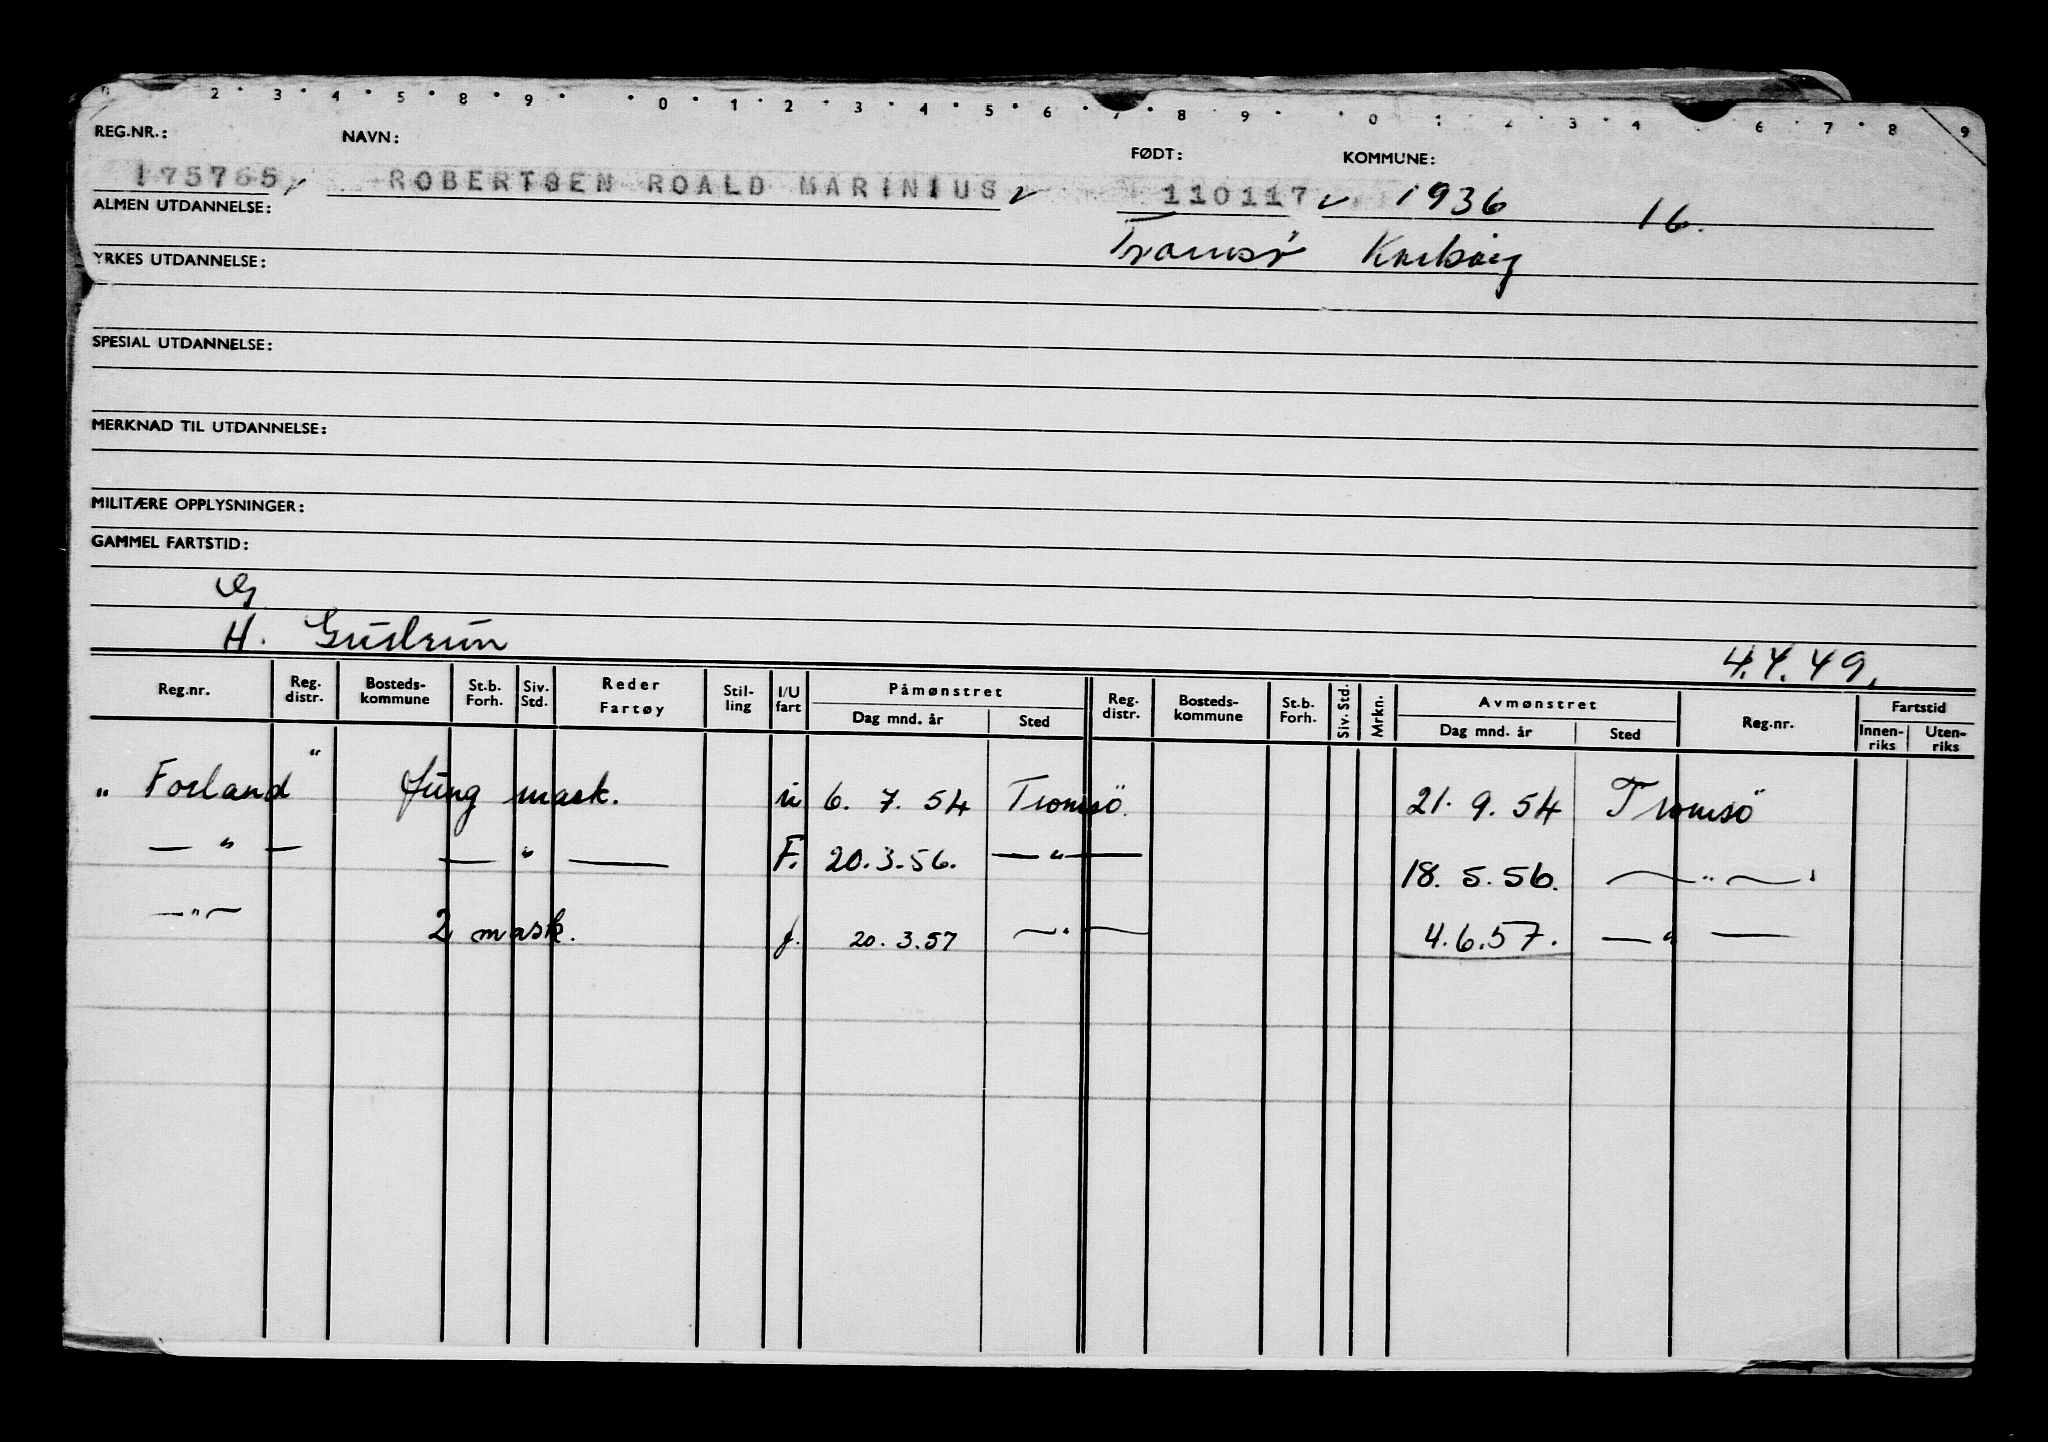 2 · 3 · 4 · 5 · 8 · 9 · · 0 · 1 · 2 · 3 · 4 · 5 · 6 · 7 · 8 · 9 · · 0 · 1 · 2 · 3 · 4 6 · 7 · 8 9
REG.NR.: NAVN: FØDT: KOMMUNE:
175765 ROBERTSEN ROALD MARINIUS 110117 1936 16.
ALMEN UTDANNELSE:
Tromsø Karlsøy
YRKES UTDANNELSE:
SPESIAL UTDANNELSE:
MERKNAD TIL UTDANNELSE:
MILITÆRE OPPLYSNINGER:
GAMMEL FARTSTID:
G
H. Gudrun 4.7.49.
Reg.nr. Reg. distr. Bosteds-kommune St.b. Forh. Siv. Std. Reder Fartøy Stil-ling I/U fart Påmønstret Dag mnd. år Sted Reg. distr. Bosteds-kommune St.b. Forh. Siv. Std. Mrkn. Avmønstret Dag mnd. år Sted Reg.nr. Fartstid Innen-riks Uten-riks
" Forland " Jung mask. u 6. 7. 54 Tromsö. 21. 9. 54 Tromsö
— " — — " — F. 20.3.56. — " — 18. 5. 56. — " —
— " — 2 mask. f. 20. 3. 57 — " — 4.6.57. — " —